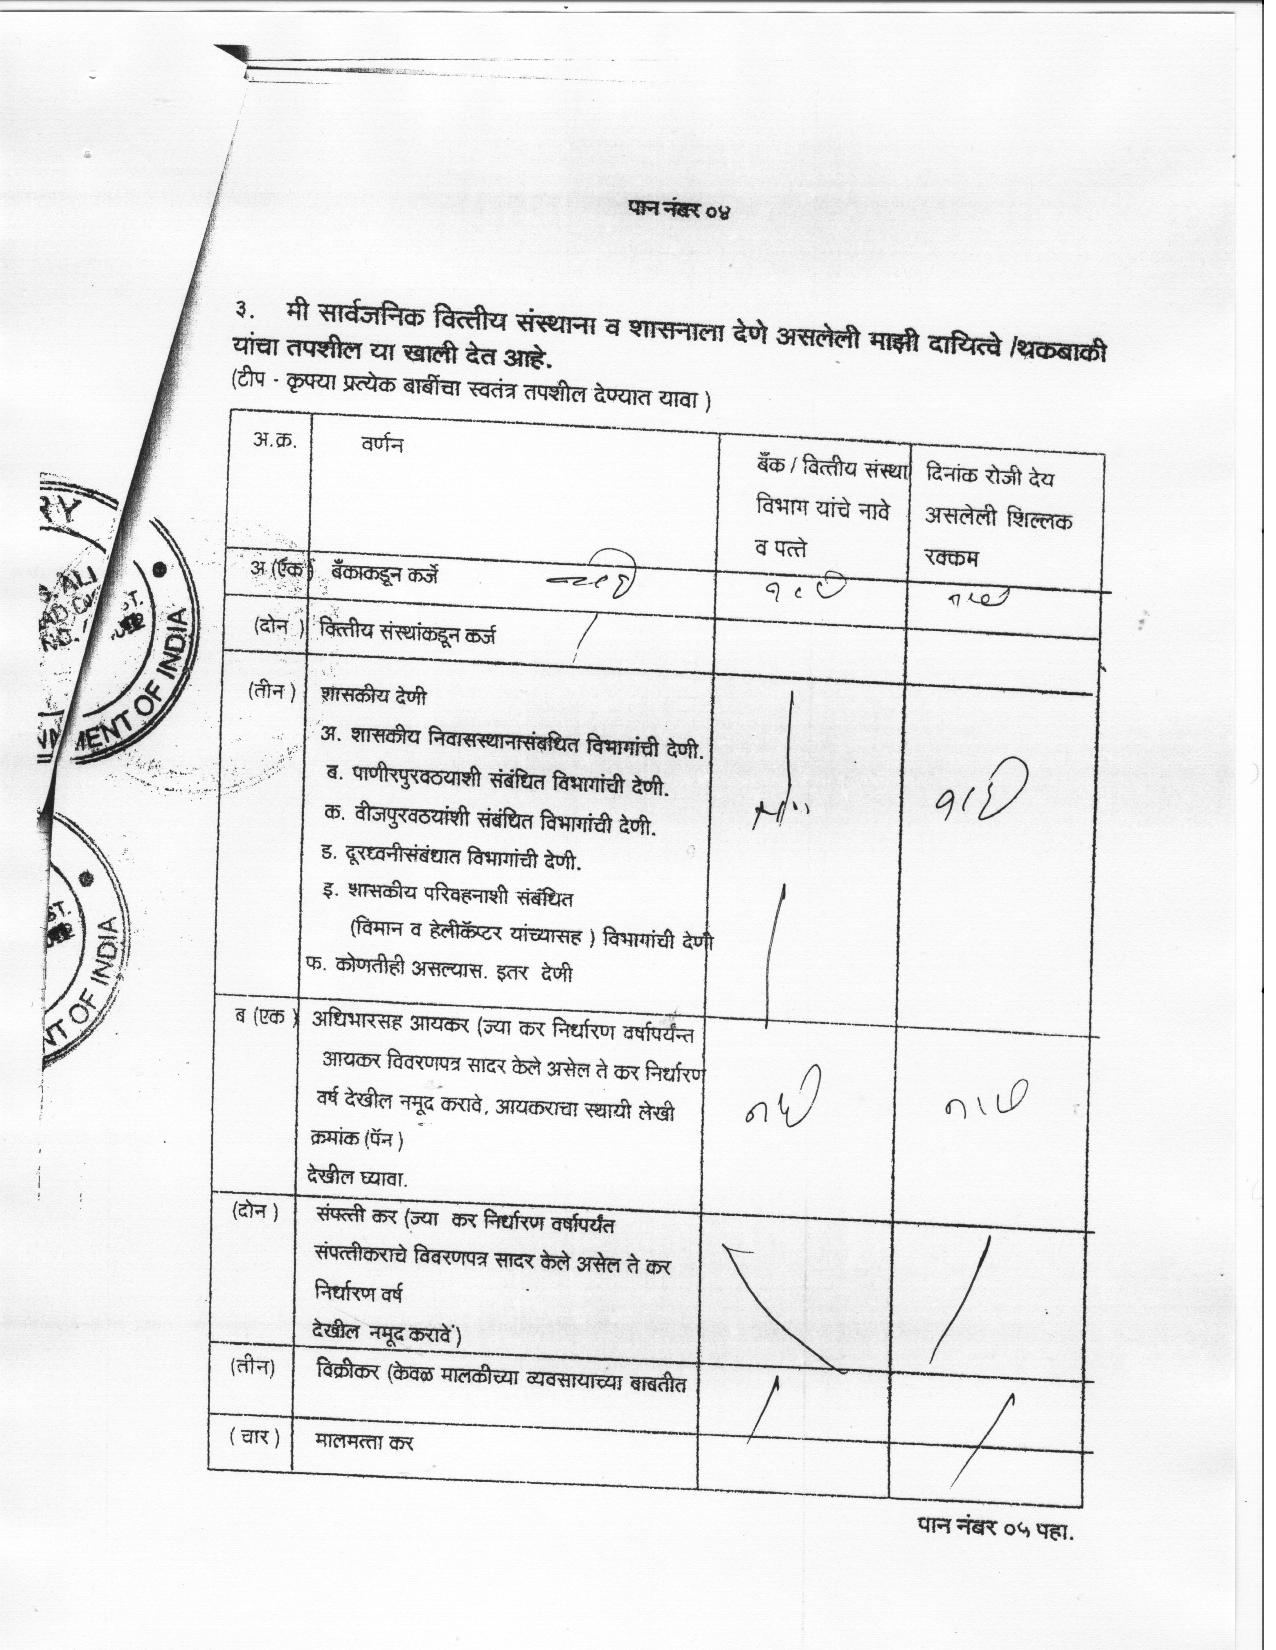 पान नंबर ०४
३. मी सार्वजनिक वित्तीय संस्थाना व शासनाला देणे असलेली माझी दायित्वे /थकबाकी
यांचा तपशील या खाली देत आहे.
(टीप - कृपया प्रत्येक बाबींचा स्वतंत्र तपशील देण्यात यावा )
अ.क्र. वर्णन
बँक / वित्तीय संस्था
विभाग यांचे नावे
व पत्ते
दिनांक रोजी देय
असलेली शिल्लक
रक्कम
अ (एक) बँकाकडून कर्जे नाही नाही नाही
(दोन ) वित्तीय संस्थांकडून कर्ज
(तीन ) शासकीय देणी
अ. शासकीय निवासस्थानासंबधित विभागांची देणी.
ब. पाणीरपुरवठयाशी संबंधित विभागांची देणी.
क. वीजपुरवठयांशी संबंधित विभागांची देणी.
नाही
ड. दूरध्वनीसंबंधात विभागांची देणी.
इ. शासकीय परिवहनाशी संबंधित
(विमान व हेलीकॅप्टर यांच्यासह ) विभागांची देणी
फ. कोणतीही असल्यास. इतर देणी
ब (एक ) अधिभारसह आयकर (ज्या कर निर्धारण वर्षापर्यंन्त
आयकर विवरणपत्र सादर केले असेल ते कर निर्धारण
वर्ष देखील नमूद करावे, आयकराचा स्थायी लेखी
नाही नाही
क्रमांक (पॅन )
देखील घ्यावा.
(दोन ) संपत्ती कर (ज्या कर निर्धारण वर्षापर्यंत
संपत्तीकराचे विवरणपत्र सादर केले असेल ते कर
निर्धारण वर्ष
देखील नमूद करावे )
(तीन) विक्रीकर (केवळ मालकीच्या व्यवसायाच्या बाबतीत
( चार ) मालमत्ता कर
पान नंबर ०५ पहा.
RY
ALI
ST.
MENT OF INDIA
ST.
NT OF INDIA